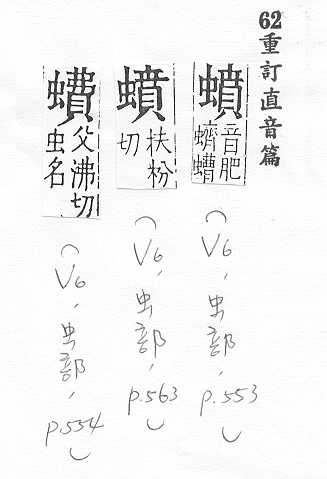 62重訂直音篇
蟦
音肥
蠐螬
(V6, 虫部, p.553)
蟦
扶粉
切
(V6, 虫部, p.563)
父沸切
虫名
(V6, 虫部, p.554)